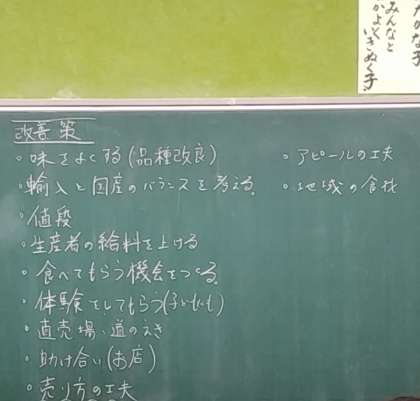 たかな子
みんなと
かよく
いきぬく子
改善策
・味をよくする(品種改良)
・輸入と国産のバランスを考える。
・値段
・生産者の給料を上げる
・食べてもらう機会をつくる。
・体験をしてもらう(子どもも)
・直売場・道のえき
・助け合い(お店)
・売り方の工夫
・アピールの工夫
・地域の食材